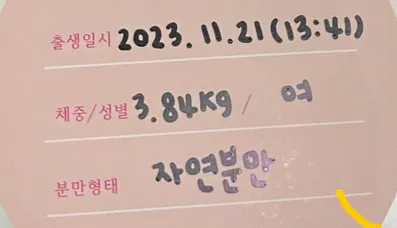 출생일시 2023. 11. 21 (13:41)
체중/성별 3.84kg / 여
분만형태 자연분만